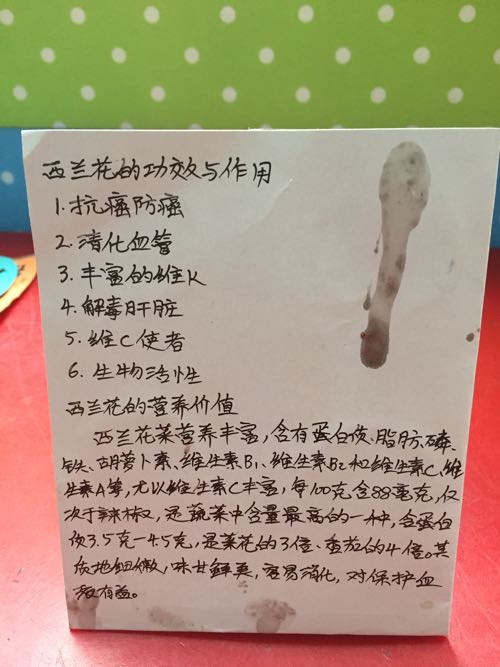 西兰花的功效与作用
1.抗癌防癌
2.清化血管
3.丰富的维K
4.解毒肝脏
5.维C使者
6.生物活性
西兰花的营养价值
西兰花菜营养丰富,含有蛋白质、脂肪、磷、
铁、胡萝卜素、维生素B1、维生素B2和维生素C、维
生素A等,尤以维生素C丰富,每100克含88毫克,仅
次于辣椒,是蔬菜中含量最高的一种,含蛋白
质3.5克-4.5克,是菜花的3倍、番茄的4倍。其
质地细嫩,味甘鲜美,容易消化,对保护血
液有益。